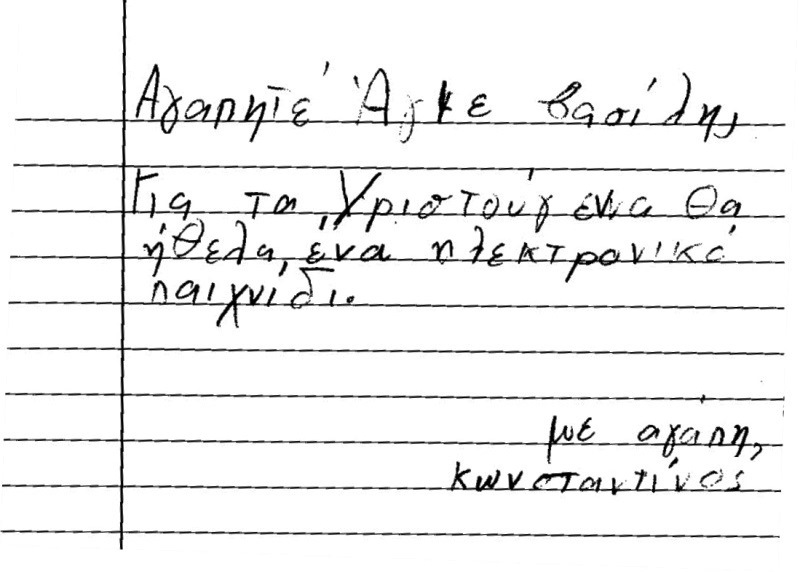 Αγαπητέ Άγκε βασίλη,
Για τα Χριστούγενα θα
ήθελα ένα ηλεκτρονικό
παιχνίδι.
με αγάπη,
κωνσταντίνος